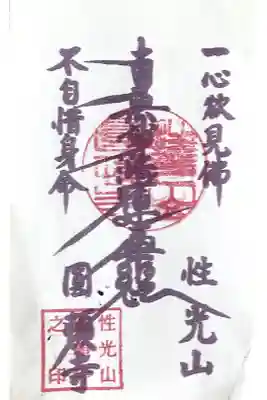 一心欲見佛
南無妙法蓮華経
不自惜身命
性光山
圓寺
性光山
之印